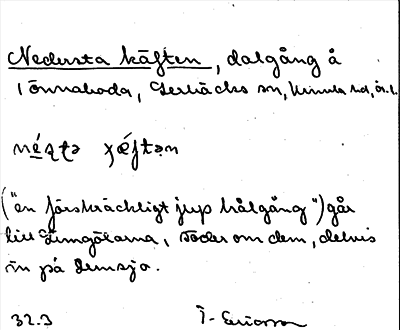 Nedersta käften, dalgång å
Tönnaboda, Gerbäcks sn, Kinnla hd, ör. l.
né̱ʂtə  çǽftən
("en förskräckligt jup hålgång") går
till Limgölarna, söder om dem, delvis
in på Lemsjo.
32.3  T. Ericsson